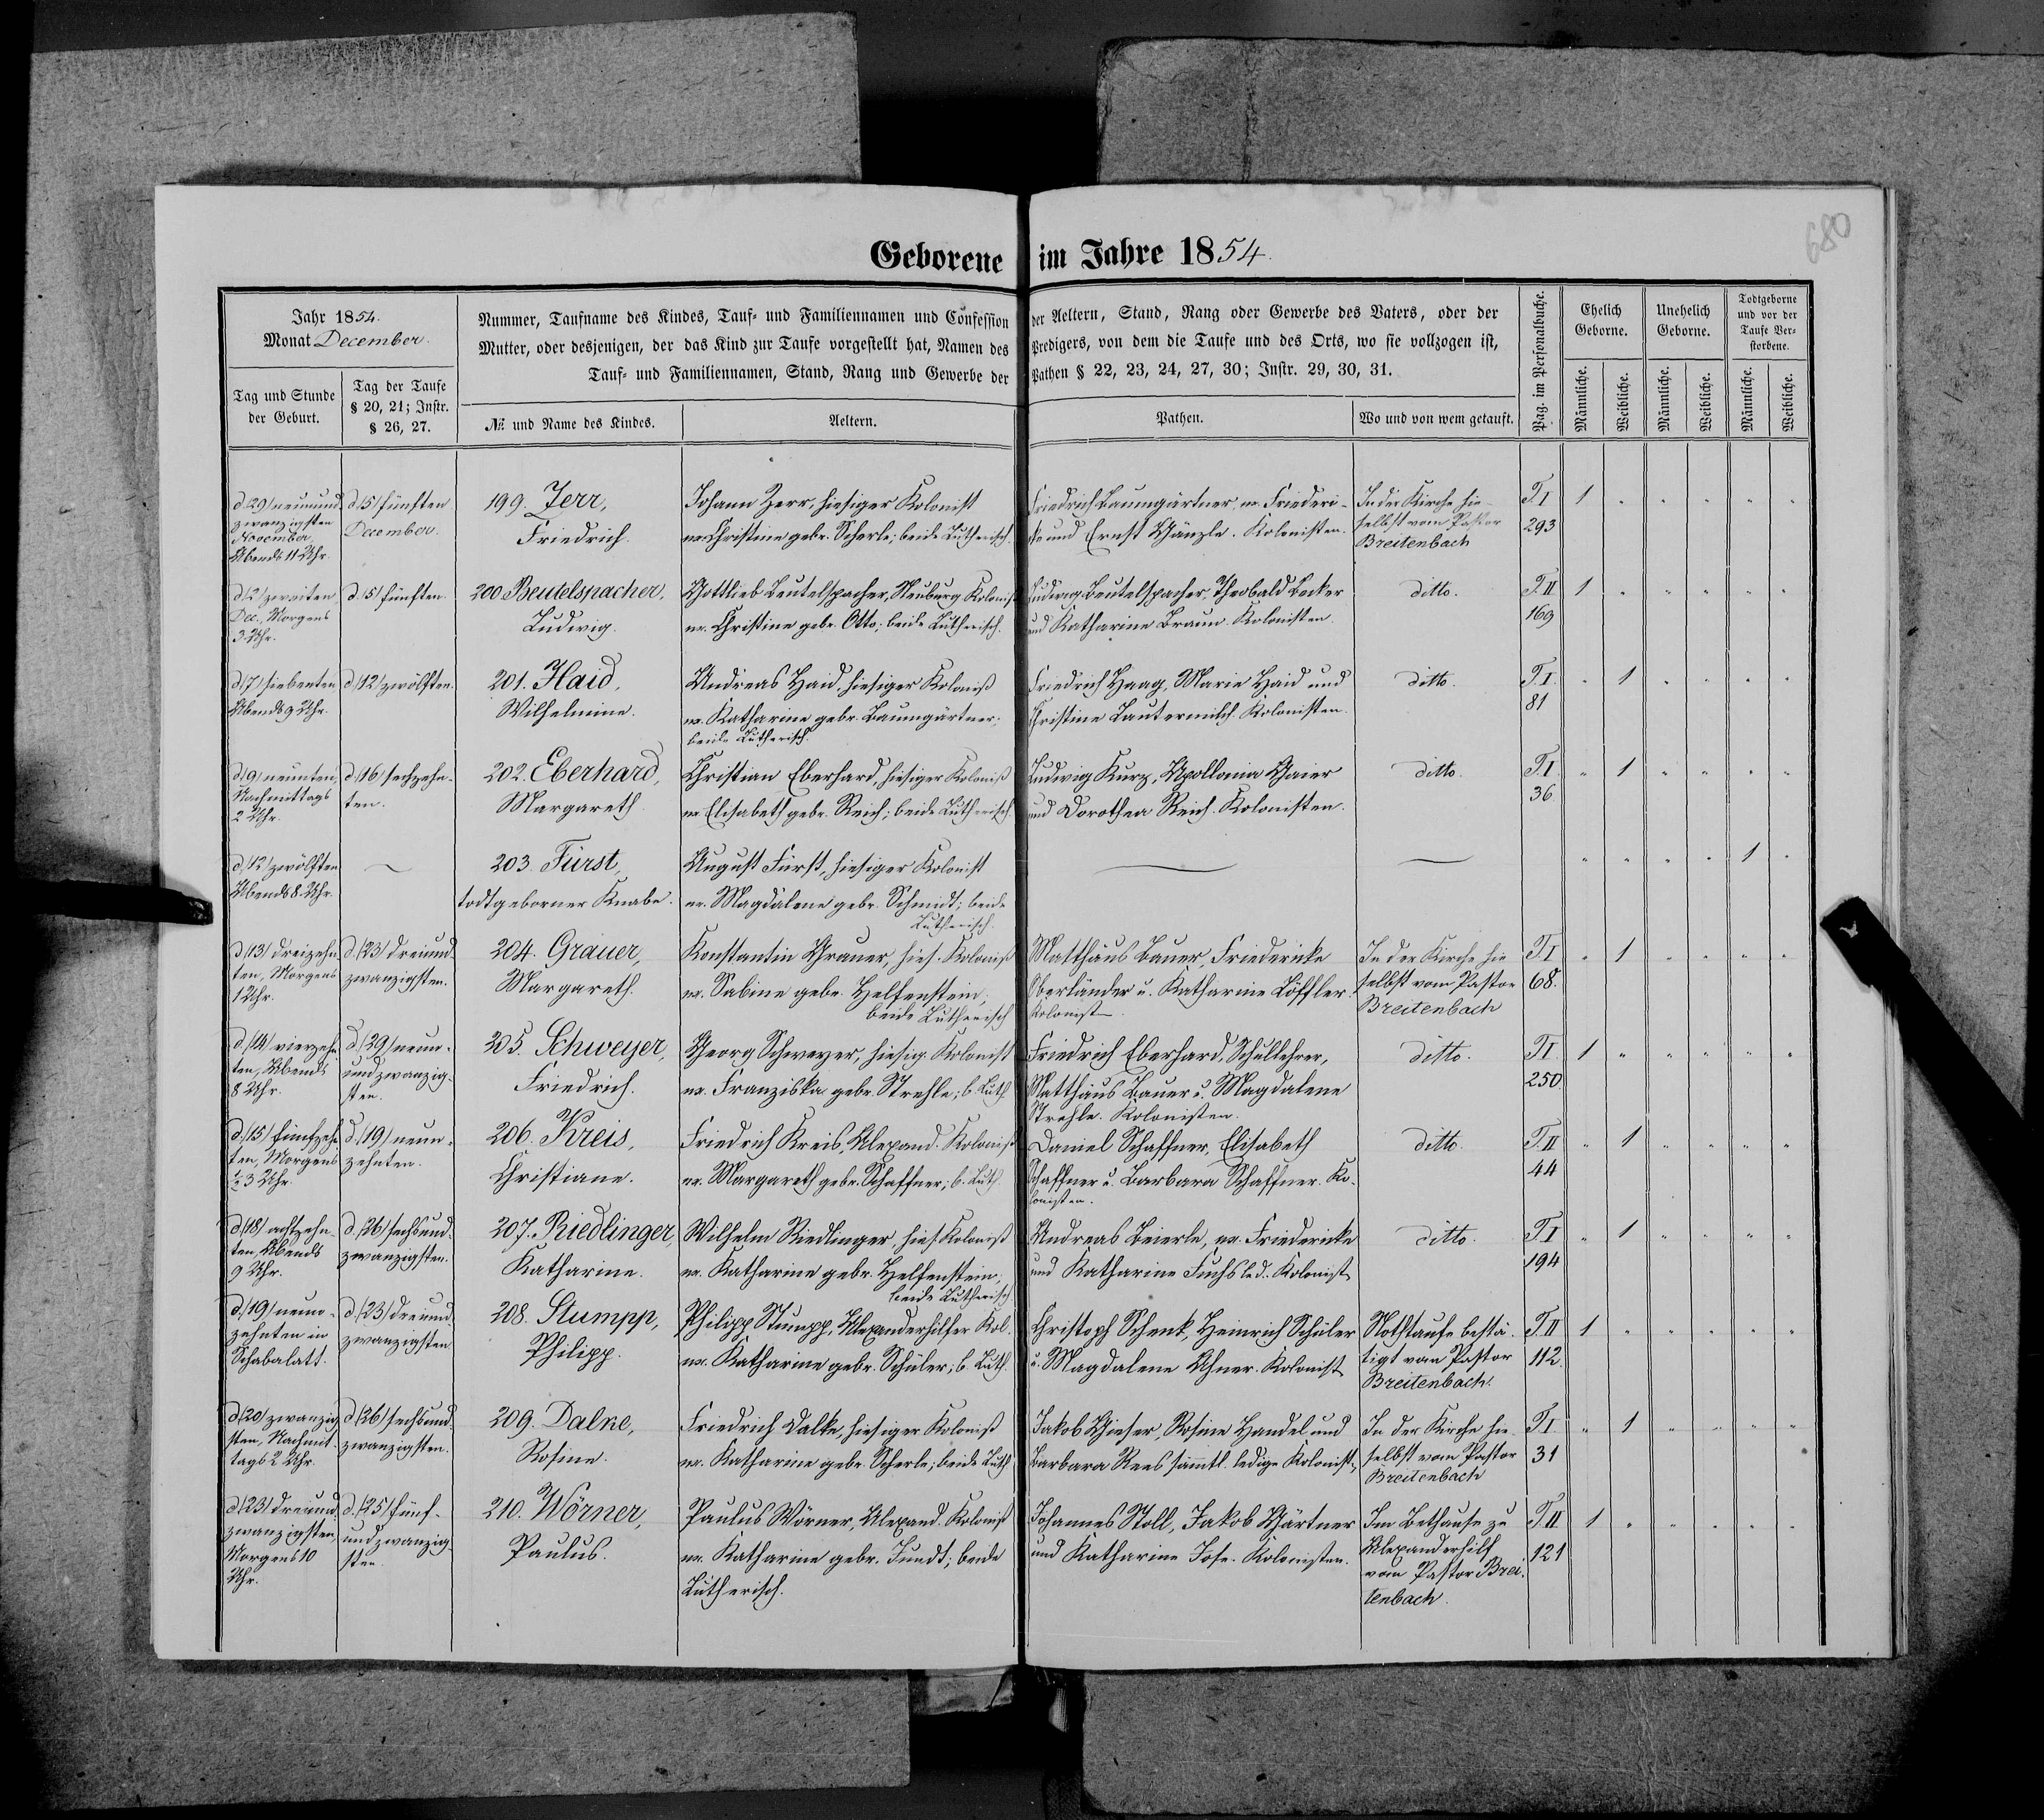 680
Geborene im Jahre 1854.
Jahr 1854.
Monat December.
Tag und Stunde
der Geburt.
Tag der Taufe
§ 20, 21; Instr.
§ 26, 27.
Nummer, Taufname des Kindes, Tauf- und Familiennamen und Confession der Aeltern, Stand, Rang oder Gewerbe des Vaters, oder der
Mutter, oder desjenigen, der das Kind zur Taufe vorgestellt hat, Namen des Predigers, von dem die Taufe und des Orts, wo sie vollzogen ist,
Tauf- und Familiennamen, Stand, Rang und Gewerbe der Pathen § 22, 23, 24, 27, 30; Instr. 29, 30, 31.
№ und Name des Kindes.
Aeltern.
Pathen.
Wo und von wem getauft.
Pag. im Personalbuche.
Ehelich
Geborne.
Unehelich
Geborne.
Todtgeborne
und vor der
Taufe Ver-
storbene.
Männliche.
Weibliche.
Männliche.
Weibliche.
Männliche.
Weibliche.
d. 29) neunund
zwanzigsten
November,
Abends 11 Uhr.
d. 5) fünften
December.
199. Zerr,
Friedrich.
Johann Zerr, hiesiger Kolonist
ux. Christine gebr. Scherle; beide Lutherisch.
Friedrich Baumgärtner, ux. Friederi-
ke und Ernst Gänzle. Kolonisten.
In der Kirche hie-
selbst vom Pastor
Breitenbach
T. I
293
1
d. 2) zweiten
Dec., Morgens
3 Uhr.
d. 5) fünften.
200. Beutelspacher,
Ludwig.
Gottlieb Beutelspacher, Neuburg. Kolonist
ux. Christine gebr. Otto; beide Lutherisch.
Ludwig Beutelspacher, Theobald Becker
und Katharine Braun. Kolonisten.
ditto.
T. II
169
1
d. 7) siebenten
Abends 9 Uhr.
d. (12) zwölften.
201. Haid,
Wilhelmine.
Andreas Haid, hiesiger Kolonist
ux. Katharine gebr. Baumgärtner;
beide Lutherisch.
Friedrich Haag, Marie Haid und
Christine Lautermilch. Kolonisten.
ditto.
T. I.
81
1
d. 9) neunten,
Nachmittags
2 Uhr.
d. (16) sechzehn-
ten.
202. Eberhard,
Margareth.
Christian Eberhard, hiesiger Kolonist
ux. Elisabeth gebr. Reich; beide Lutherisch.
Ludwig Kurz, Apollonia Gaier
und Dorothea Reich. Kolonisten.
ditto.
T. I.
36
1
d. 12) zwölften
Abends 8 Uhr.
203. Fürst,
todtgeborner Knabe.
August Fürst, hiesiger Kolonist
ux. Magdalene gebr. Schmidt; beide
Lutherisch.
1
d. (13) dreizehn
ten, Morgens
1 Uhr.
d. (23) dreiund
zwanzigsten.
204. Grauer,
Margareth.
Konstantin Grauer, hies. Kolonist
ux. Sabine gebr. Helfenstein;
beide Lutherisch
Matthäus Bauer, Friedericke
Oberländer u. Katharine Löffler.
Kolonist
In der Kirche hie
selbst vom Pastor
Breitenbach
T. I
68.
1
d. (14) vierzehn
ten, Abends
8 Uhr.
d. (29) neun-
undzwanzig-
sten.
205. Schweyer,
Friedrich.
Georg Schweyer, hiesig. Kolonist
ux. Franziska gebr. Strehle; b. Luth.
Friedrich Eberhard, Schullehrer,
Matthäus Bauer u. Magdalene
Strehle. Kolonisten.
ditto.
T. I.
250
1
d. (15) fünfzehn
ten, Morgens
½3 Uhr.
d. (19) neun-
zehnten.
206. Kreis,
Christiane.
Friedrich Kreis, Alexand. Kolonist
ux. Margareth gebr. Schaffner; b. Luth.
Daniel Schaffner, Elisabeth
Schaffner u. Barbara Schaffner. Ko-
lonisten.
ditto.
T. II
44
1
d. (18) achtzehn-
ten, Abends
9 Uhr.
d. (26) sechsund
zwanzigsten.
207. Riedlinger,
Katharine.
Wilhelm Riedlinger, hies. Kolonist
ux. Katharine gebr. Helfenstein;
beide Lutherisch
Andreas Beierle, ux. Friedericke
und Katharine Fuchs led. Kolonist
ditto.
T. I
194
1
d. (19) neun-
zehnten in
Schabalatt.
d. (23) dreiund
zwanzigsten
208. Stumpp,
Philipp.
Philipp Stumpp, Alexanderhilfer Kol.
ux. Katharine gebr. Schüler; b. Luth.
Christoph Schenk, Heinrich Schüler
u. Magdalene Ahner. Kolonist
Nothtaufe bestä-
tigt vom Pastor
Breitenbach.
T. II
112.
1
d. (20) zwanzig
sten, Nachmit-
tags 2 Uhr.
d. (26) sechsund
zwanzigsten.
209. Dalke,
Rosine.
Friedrich Dalke, hiesiger Kolonist
ux. Katharine gebr. Scherle; beide Luth.
Jakob Gieser, Rosine Handel und
Barbara Rees sämmtl. ledige Kolonist.
In der Kirche hie-
selbst vom Pastor
Breitenbach
T. I
31
1
d. (23) dreiund
zwanzigsten,
Morgens 10
Uhr.
d. (25) fünf-
undzwanzig
sten
210. Wörner,
Paulus.
Paulus Wörner, Alexand. Kolonist
ux. Katharine gebr. Jundt; beide
Lutherisch.
Johannes Stoll, Jakob Gärtner
und Katharine Jose. Kolonisten.
Im Bethause zu
Alexanderhilf
vom Pastor Brei-
tenbach.
T. II
121
1